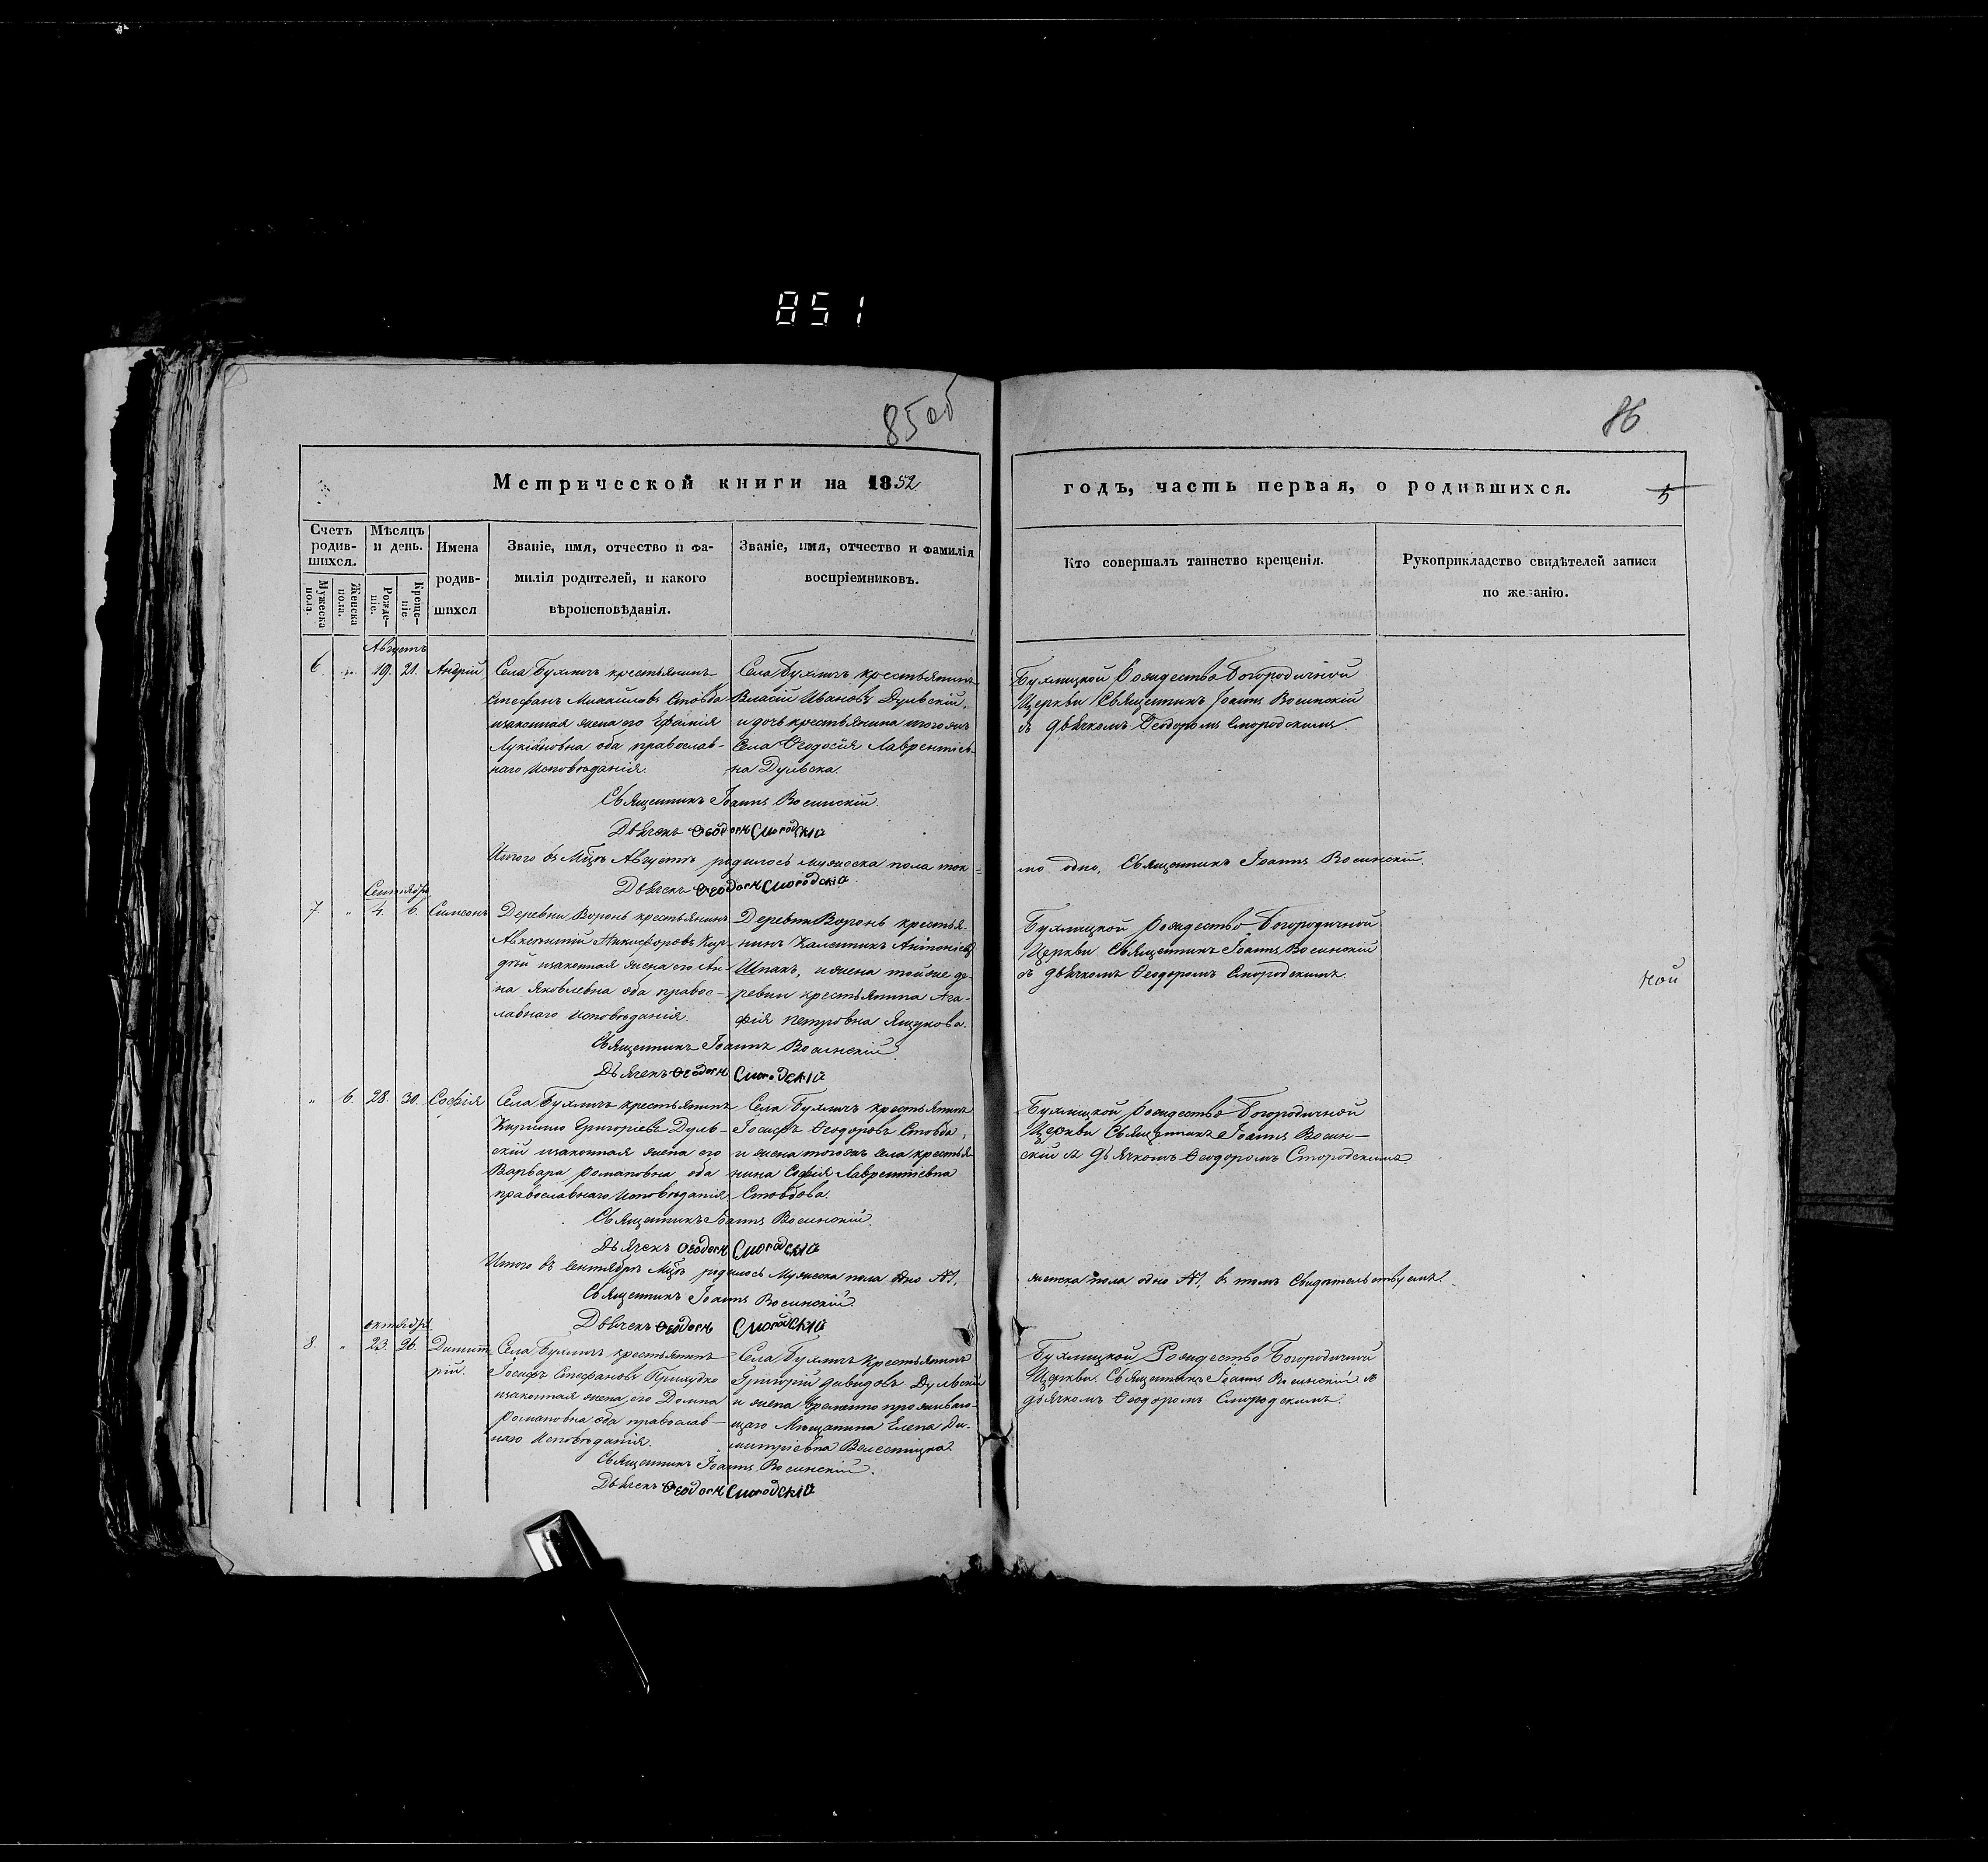 851
85об
86
Метрической книги на 1852
годъ, часть первая, о родившихся.
5
Счетъ родив-шихся.
Мужеска пола.
Женска пола.
Мѣсяцъ и день.
Рожде-ніе.
Креще-ніе
Имена
родив-
шихся
Званіе, имя, отчество и фа-
милія родителей, и какого
вѣроисповѣданія.
Званіе, имя, отчество и фамилія
воспріемниковъ.
Кто совершалъ таинство крещенія.
Рукоприкладство свидѣтелей записи
по желанію.
Августъ
6. „ 19. 21. Андрій
Села Бухличъ крестьянинъ
Стефанъ Михайловъ Стовба
изаконная жена его
Лукіановна оба православ-
наго Исповѣданія.
Села Бухличъ крестьянинъ
Власій Ивановъ Дульскій,
и дочь крестьянина тогожъ
Села Ѳеодосія Лаврентіев-
на Дульска.
Бухлицкой Рождество Богородичной
Церкви Священникъ Іоаннъ
съ дьячкомъ Ѳеодоромъ
Священникъ Іоаннъ
Дьячекъ Ѳеодоръ
Итого въ Мцѣ Августѣ родилось мужеска пола ток-
мо одно, Священникъ Іоаннъ
Дьячекъ Ѳеодоръ
Сентябрь
7. „ 4. 6. Симеонъ
Деревни Воронь крестьянинъ
Авксентій Никифоровъ
изаконная жена его Ан-
на Яковлевна оба правос-
лавнаго Исповѣданія.
Деревни Воронь крестья-
нинъ Каленникъ Антоніевъ
Шпакъ, и жена тойже де-
ревни крестьянина Ага-
фія Петровна Ящукова.
Бухлицкой Рождество Богородичной
Церкви Священникъ Іоаннъ
съ дьячкомъ Ѳеодоромъ
ной
Священникъ Іоаннъ
Дьячекъ Ѳеодоръ
„ 6. 28. 30. Софія
Села Бухличъ крестьянинъ
Кирилло Григоріевъ Дуль-
скій изаконная жена его
Варвара Романовна оба
православнаго Исповѣданія
Села Бухличъ крестьянинъ
Іосифъ Ѳеодоровъ Стовба,
и жена тогожъ села крестья-
нина Софія Лаврентіевна
Стовбова.
Бухлицкой Рождество Богородичной
Церкви Священникъ Іоаннъ
съ дьячкомъ Ѳеодоромъ
Священникъ Іоаннъ
Дьячекъ Ѳеодоръ
Итого въ Сентябрѣ Мцѣ родилось Мужеска пола одно №1,
женска пола одно №1, въ томъ Свидѣтельствуемъ.
Священникъ Іоаннъ
Дьячекъ Ѳеодоръ
октябрь
8. „ 23. 26. Димит-
рій.
Села Бухличъ крестьянинъ
Іосифъ Стефановъ
изаконная жена его Домна
Романовна оба православ-
наго Исповѣданія.
Села Бухличъ крестьянинъ
Григорій Давидовъ Дульскій
и жена временно проживаю-
щаго Мѣщанина Елена Ди-
митріевна
Бухлицкой Рождество Богородичной
Церкви Священникъ Іоаннъ
дьячкомъ Ѳеодоромъ
Священникъ Іоаннъ
Дьячекъ Ѳеодоръ